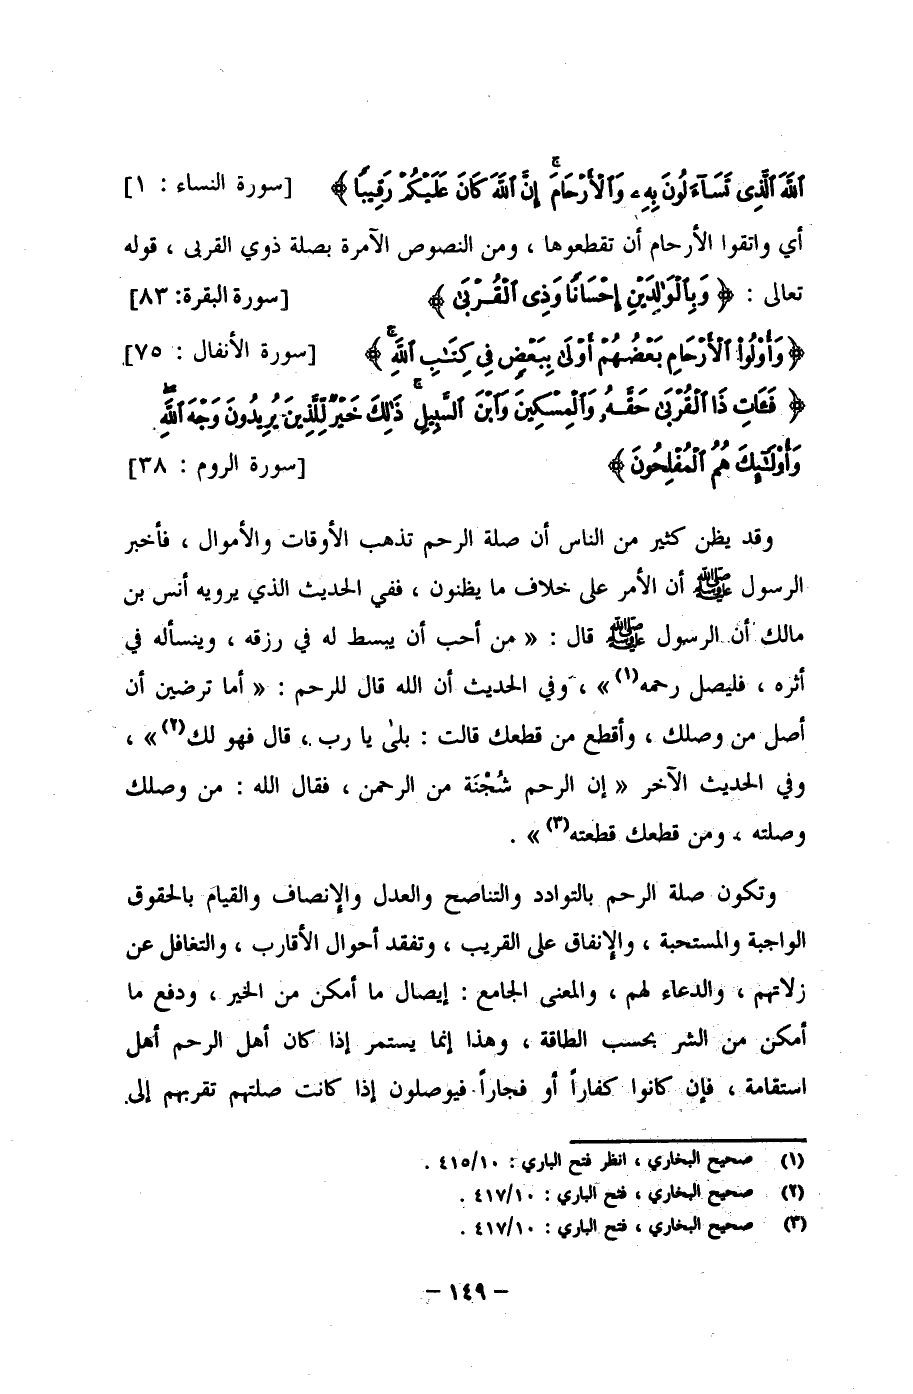 ٱللَّهَ ٱلَّذِى تَسَآءَلُونَ بِهِۦ وَٱلْأَرْحَامَ ۚ إِنَّ ٱللَّهَ كَانَ عَلَيْكُمْ رَقِيبًا ﴾ [سورة النساء : ١]
أي واتقوا الأرحام أن تقطعوها ، ومن النصوص الآمرة بصلة ذوي القربى ، قوله
تعالى : ﴿ وَبِٱلْوَٰلِدَيْنِ إِحْسَانًا وَذِى ٱلْقُرْبَىٰ ﴾ [سورة البقرة: ٨٣]
﴿ وَأُو۟لُوا۟ ٱلْأَرْحَامِ بَعْضُهُمْ أَوْلَىٰ بِبَعْضٍ فِى كِتَٰبِ ٱللَّهِ ۚ ﴾ [سورة الأنفال : ٧٥]
﴿ فَـَٔاتِ ذَا ٱلْقُرْبَىٰ حَقَّهُۥ وَٱلْمِسْكِينَ وَٱبْنَ ٱلسَّبِيلِ ۚ ذَٰلِكَ خَيْرٌ لِّلَّذِينَ يُرِيدُونَ وَجْهَ ٱللَّهِ ۖ
وَأُو۟لَٰٓئِكَ هُمُ ٱلْمُفْلِحُونَ ﴾ [سورة الروم : ٣٨]
وقد يظن كثير من الناس أن صلة الرحم تذهب الأوقات والأموال ، فأخبر
الرسول ﷺ أن الأمر على خلاف ما يظنون ، ففي الحديث الذي يرويه أنس بن
مالك أن الرسول ﷺ قال : « من أحب أن يبسط له في رزقه ، وينسأله في
أثره ، فليصل رحمه(١) » ، وفي الحديث أن الله قال للرحم : « أما ترضين أن
أصل من وصلك ، وأقطع من قطعك قالت : بلىٰ يا رب ، قال فهو لك(٢) » ،
وفي الحديث الآخر « إن الرحم شُجْنَة من الرحمن ، فقال الله : من وصلك
وصلته ، ومن قطعك قطعته(٣) » .
وتكون صلة الرحم بالتوادد والتناصح والعدل والإنصاف والقيام بالحقوق
الواجبة والمستحبة ، والإنفاق على القريب ، وتفقد أحوال الأقارب ، والتغافل عن
زلاتهم ، والدعاء لهم ، والمعنى الجامع : إيصال ما أمكن من الخير ، ودفع ما
أمكن من الشر بحسب الطاقة ، وهذا إنما يستمر إذا كان أهل الرحم أهل
استقامة ، فإن كانوا كفاراً أو فجاراً فيوصلون إذا كانت صلتهم تقربهم إلى
(١) صحيح البخاري ، انظر فتح الباري : ٤١٥/١٠ .
(٢) صحيح البخاري ، فتح الباري : ٤١٧/١٠ .
(٣) صحيح البخاري ، فتح الباري : ٤١٧/١٠ .
– ١٤٩ –